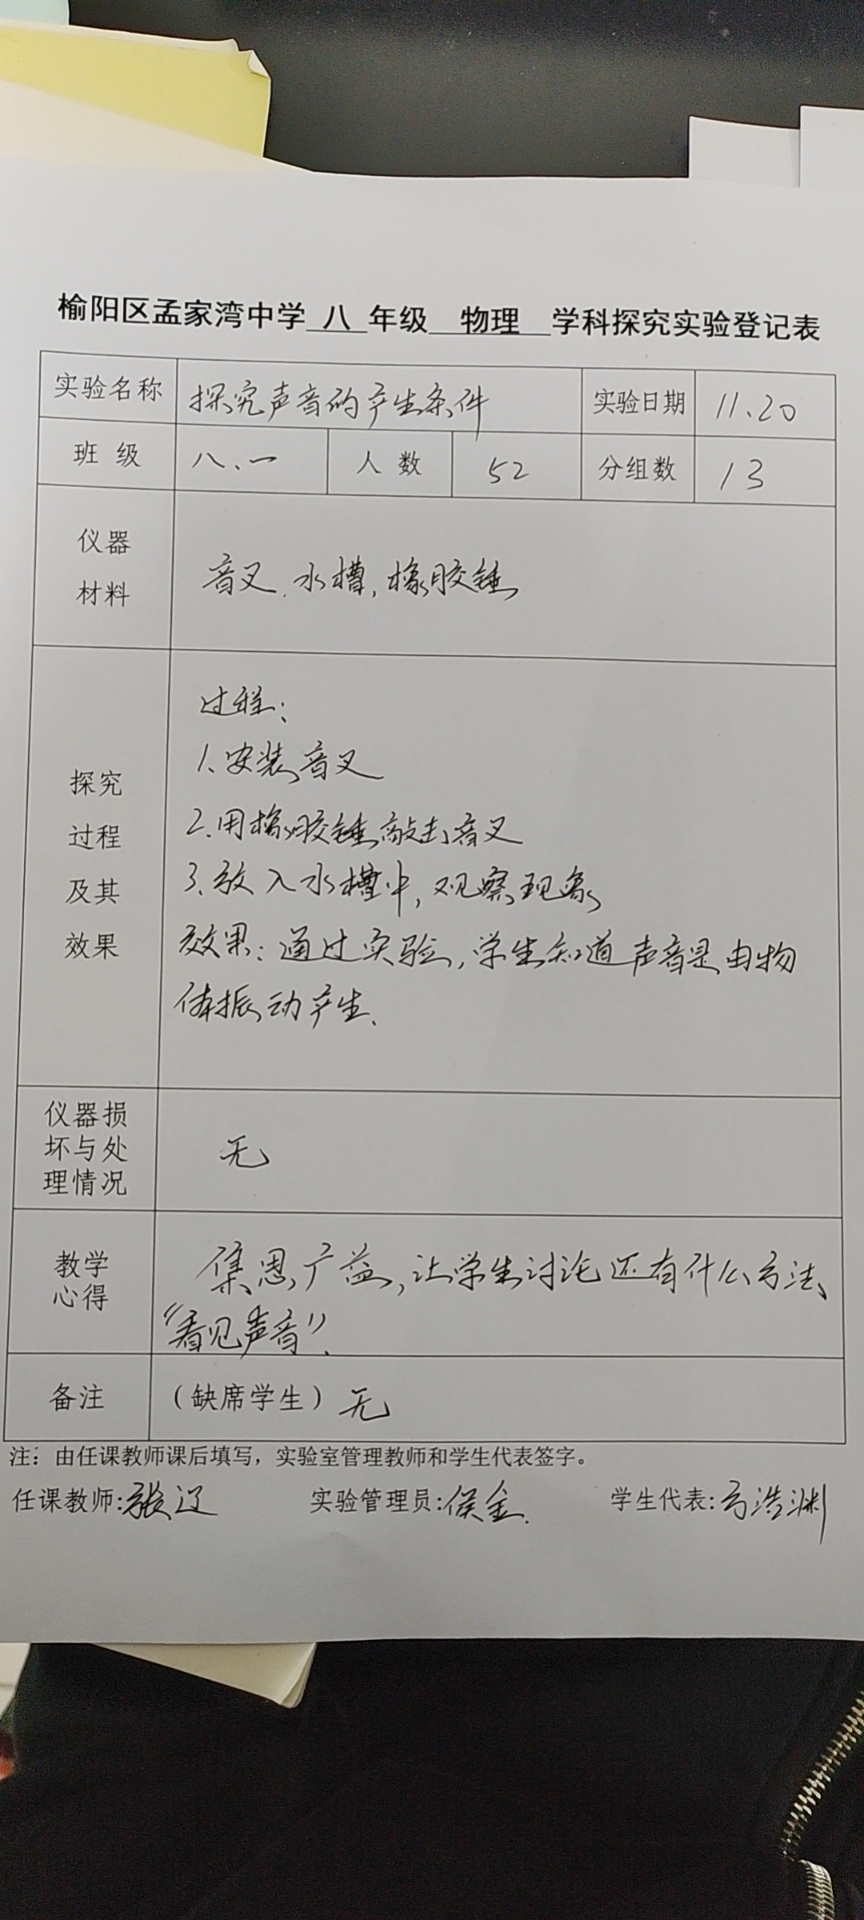 榆阳区孟家湾中学 八 年级 物理 学科探究实验登记表
实验名称 探究声音的产生条件 实验日期 11.20
班级 八.一 人数 52 分组数 13
仪器
材料
音叉.水槽,橡胶锤
探究
过程
及其
效果
过程:
1.安装音叉
2.用橡胶锤敲击音叉
3.放入水槽中,观察现象
效果:通过实验,学生知道声音是由物
体振动产生.
仪器损
坏与处
理情况
无
教学
心得
集思广益,让学生讨论还有什么方法、
“看见声音”.
备注 (缺席学生) 无
注:由任课教师课后填写,实验室管理教师和学生代表签字。
任课教师:张辽 实验管理员:侯金. 学生代表:方浩渊